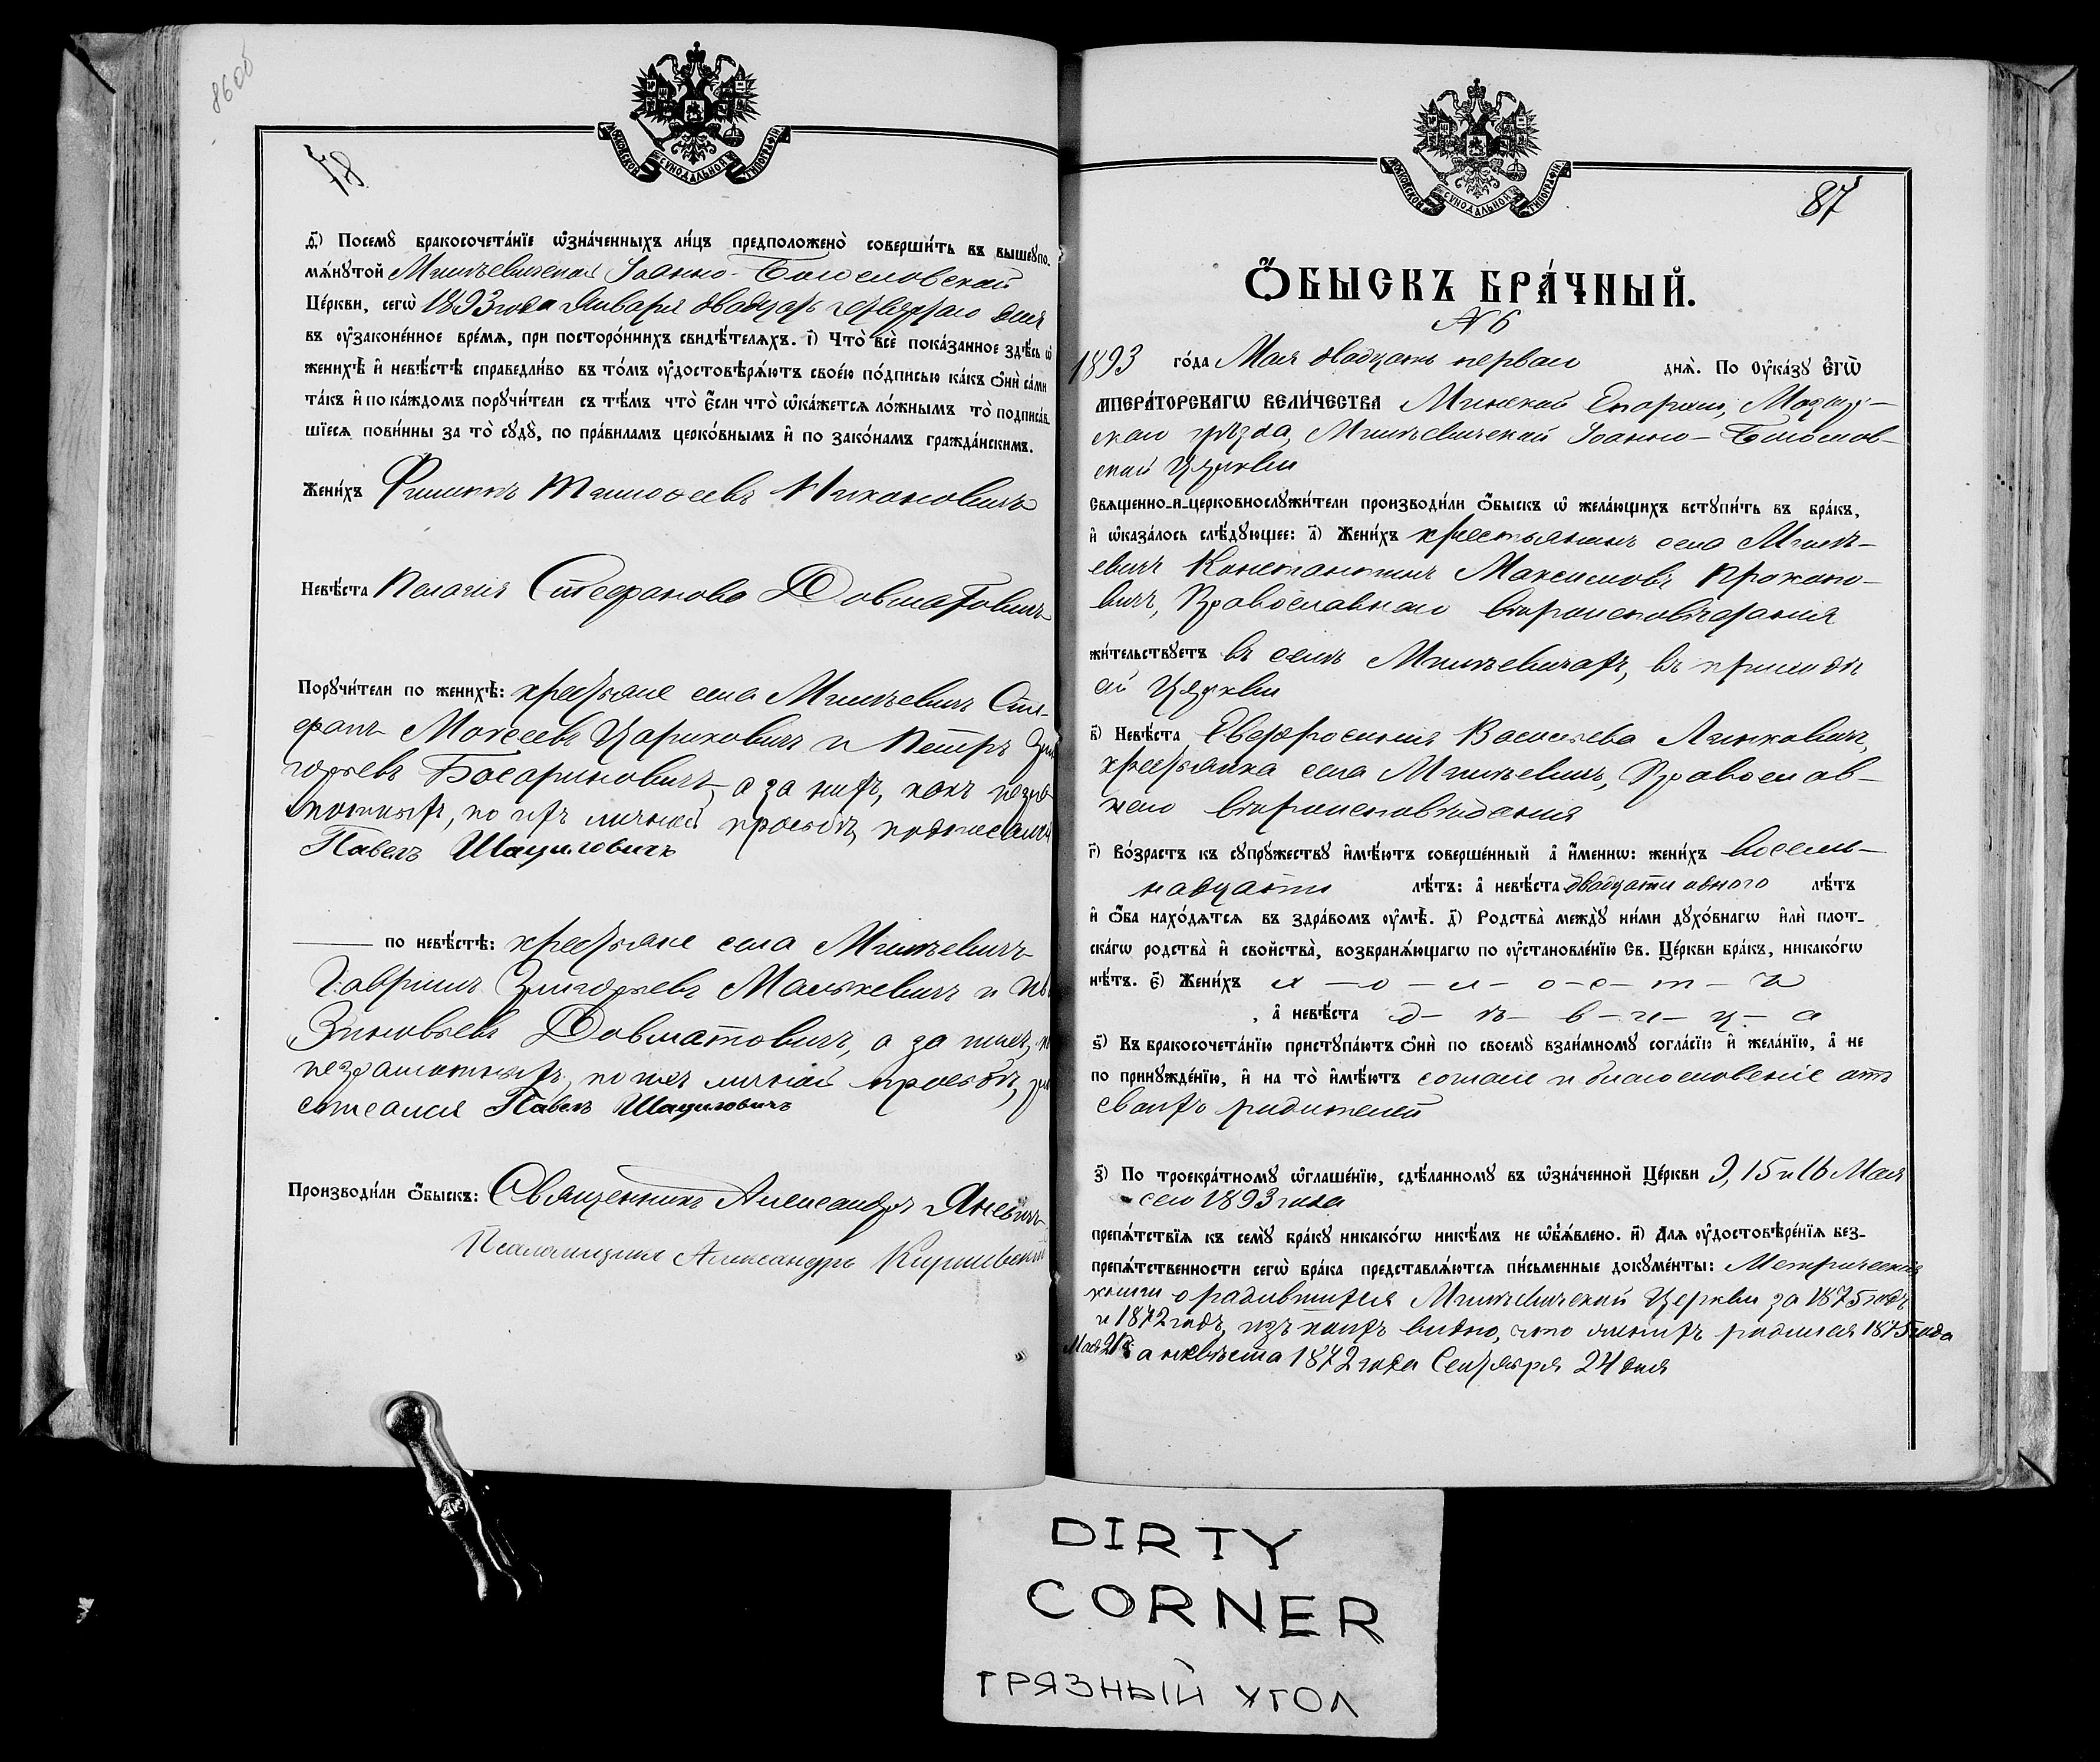 860б
78
МОСКОВСКОЙ СУНОДАЛЬНОЙ ТИПОГРАФІИ
д҃) Посемꙋ̀ бракосочета́нїе ѡ҆зна́ченныхъ ли́цъ предположено̀ соверши́ть въ вышеꙋпо-
мѧ́нꙋтой Мишевичской Іоанно-Богословской
Це́ркви, сегѡ̀ 1893 года Января двадцать четвертаго дня
въ ᲂу҆законе́нное вре́мѧ, при посторо́ннихъ свидѣ́телѧхъ. і҃) Что̀ всѐ пока́занное здѣ́сь ѡ҆
женихѣ̀ и҆ невѣ́стѣ справедли́во въ то́мъ ᲂу҆достовѣрѧ́ютъ свое́ю по́дписью ка́къ ѻ҆нѝ са́ми
та́къ и҆ по ка́ждомъ порꙋчи́тели съ тѣ́мъ что̀ є҆́сли что̀ ѡ҆ка́жетсѧ ло́жнымъ то̀ подписа́в-
шїесѧ пови́нны за то̀ сꙋдꙋ̀, по пра́виламъ церко́внымъ и҆ по зако́намъ гражда́нскимъ.
Жени́хъ Филиппъ Тимофеевъ
Невѣ́ста Пелагія Стефанова Довматовичъ
Порꙋчи́тели по женихѣ̀: крестьяне села Мишевичъ Сте-
фанъ Моисеевъ Цариковичъ и Петръ
Босариновичъ, а за нихъ, какъ
по ихъ личной просьбѣ, подписался
Павелъ Шацилович
по невѣ́стѣ: крестьяне села Мишевичъ
Гавріилъ Григорьевъ Малькевичъ и
Зиновьевъ Довматовичъ, а за нихъ,
неграмотныхъ, по ихъ личной просьбѣ,
списался Павелъ Шациловичъ
Производи́ли ѻ҆́быскъ: Священникъ Александръ Яневичъ
Псаломщикъ Александръ
МОСКОВСКОЙ СУНОДАЛЬНОЙ ТИПОГРАФІИ
87
Ѻ҆́БЫСКЪ БРА́ЧНЫЙ.
№ 6
1893 го́да Мая двадцать перваго днѧ̀. По ᲂу҆ка́зꙋ є҆гѡ̀
и҆мпера́торскагѡ вели́чества Минской Епархіи, Мозыр-
скаго уѣзда, Мишевичской Іоанно-Богослов-
ской Церкви
свѧщенно-и҆-церковнослꙋжи́тели производи́ли ѻ҆́быскъ ѡ҆ жела́ющихъ встꙋпи́ть въ бра́къ,
и҆ ѡ҆каза́лось слѣ́дꙋющее: а҃) Жени́хъ крестьянинъ села Мише-
вичъ Константинъ Максимовъ Проконо-
вичъ, Православнаго вѣроисповѣданія
жи́тельствꙋетъ въ селѣ Мишевичахъ, въ приходѣ
ей Церкви
в҃) Невѣ́ста Евфросинія Васильева Линковичъ,
крестьянка села Мишевичъ, Православ-
наго вѣроисповѣданія
г҃) Во́зрастъ къ сꙋпрꙋ́жествꙋ и҆мѣ́ютъ соверше́нный а҆ и҆́меннѡ: жени́хъ восем-
надцати лѣ́тъ: а҆ невѣ́ста двадцати одного лѣ́тъ
и҆ ѻ҆́ба нахо́дѧтсѧ въ здра́вомъ ᲂу҆мѣ̀. д҃) Родства̀ междꙋ̀ ни́ми дꙋхо́внагѡ и҆лѝ плот-
ска́гѡ родства̀ и҆ сво́йства̀, возбранѧ́ющагѡ по ᲂу҆становле́нїю Св. Це́ркви бра́къ, никако́гѡ
нѣ́тъ. є҃) Жени́хъ х — о — л — о — с — т — ъ
, а҆ невѣ́ста д — ѣ — в — и — ц — а
ѕ҃) Къ бракосочета́нїю пристꙋпа́ютъ ѻ҆нѝ по своемꙋ̀ взаи́мномꙋ согла́сїю и҆ жела́нїю, а҆ не
по принꙋжде́нїю, и҆ на то̀ и҆мѣ́ютъ согласіе и благословеніе отъ
своихъ родителей
з҃) По троекра́тномꙋ ѡ҆глаше́нїю, сдѣ́ланномꙋ въ ѡ҆зна́ченной Це́ркви 9, 15 и 16 Мая
сего 1893 года
препѧ́тствїѧ къ семꙋ̀ бра́кꙋ никако́гѡ никѣ́мъ не ѡ҆б̾ѧ́влено. и҃) Длѧ ᲂу҆достовѣре́нїѧ без-
препѧ́тственности сегѡ̀ бра́ка представлѧ́ютсѧ пи́сьменные докꙋме́нты: Метрическія
книги о родившихся Мишевичской Церкви за 1875 годъ
и 1872 годъ, изъ коихъ видно, что женихъ родился 1875 года
Мая 21, а невѣста 1872 года Сентября 24 дня
DIRTY
CORNER
ГРЯЗНЫЙ УГОЛ